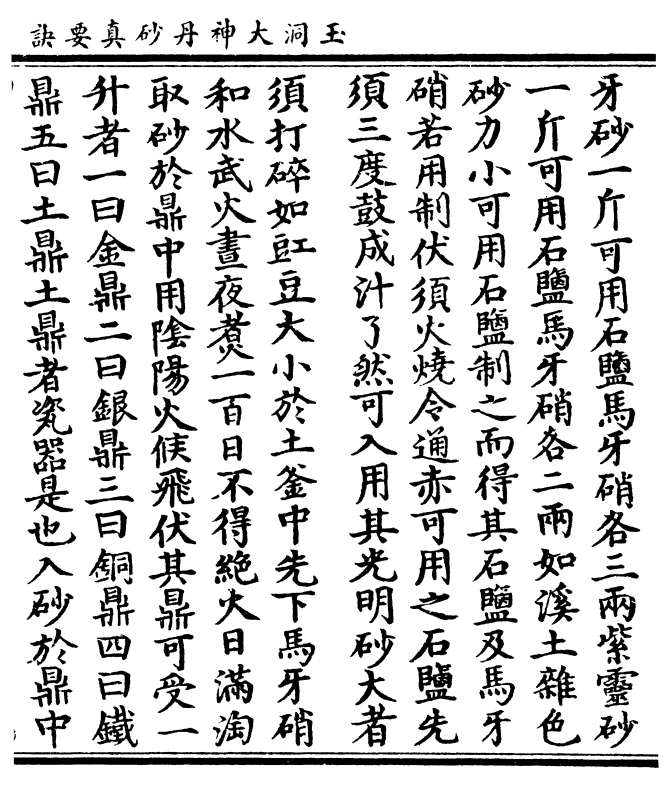 玉洞大神丹砂真要訣
牙砂一斤可用石鹽馬牙硝各三兩紫靈砂
一斤可用石鹽馬牙硝各二兩如溪土雜色
砂力小可用石鹽制之而得其石鹽及馬牙
硝若用制伏須火燒令通赤可用之石鹽先
須三度鼓成汁了然可入用其光明砂大者
須打碎如豇豆大小於土釜中先下馬牙硝
和水武火晝夜煑一百日不得絶火日滿淘
取砂於鼎中用隂陽火候飛伏其鼎可受一
升者一曰金鼎二曰銀鼎三曰銅鼎四曰鐵
鼎五曰土鼎土鼎者瓷器是也入砂於鼎中